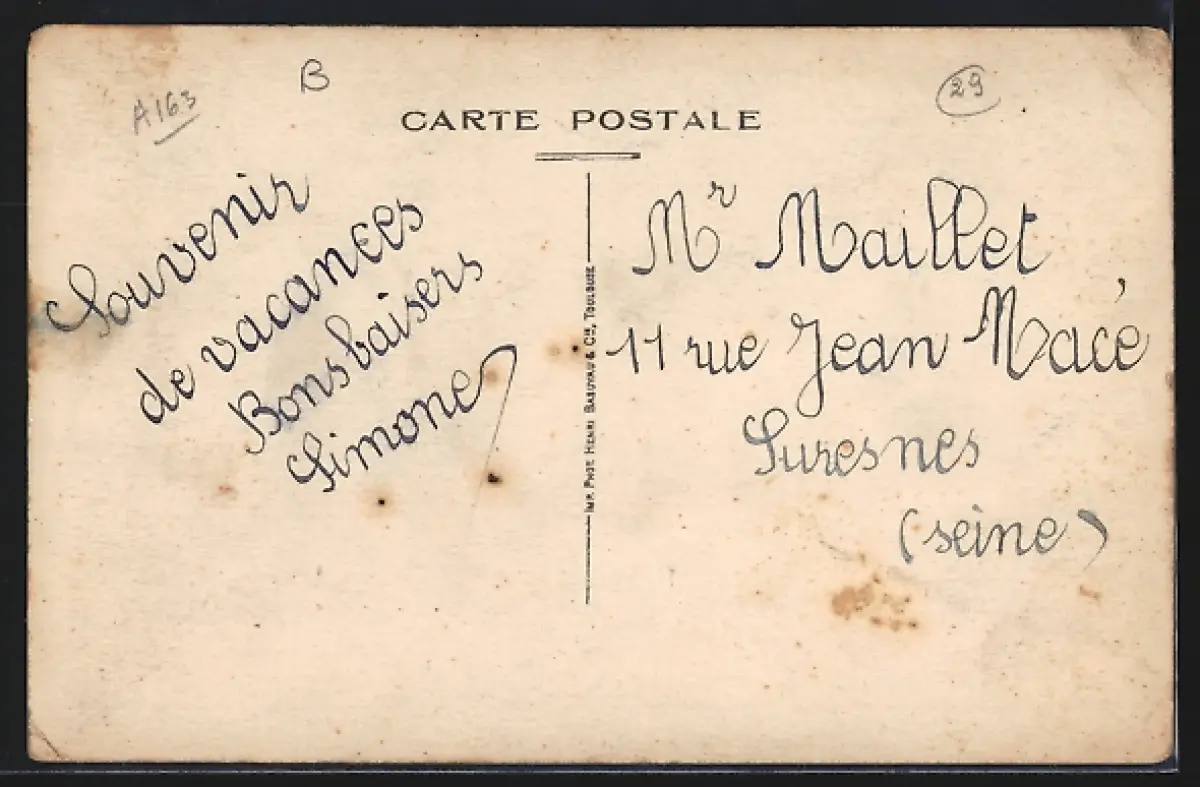 A163
B
29
CARTE POSTALE
Souvenir
de vacances
Bons baisers
Simone
IMP. PHOT. HENRI BASUYAU & Cie, TOULOUSE
Mr Maillet
11 rue Jean Macé
Suresnes
(seine)